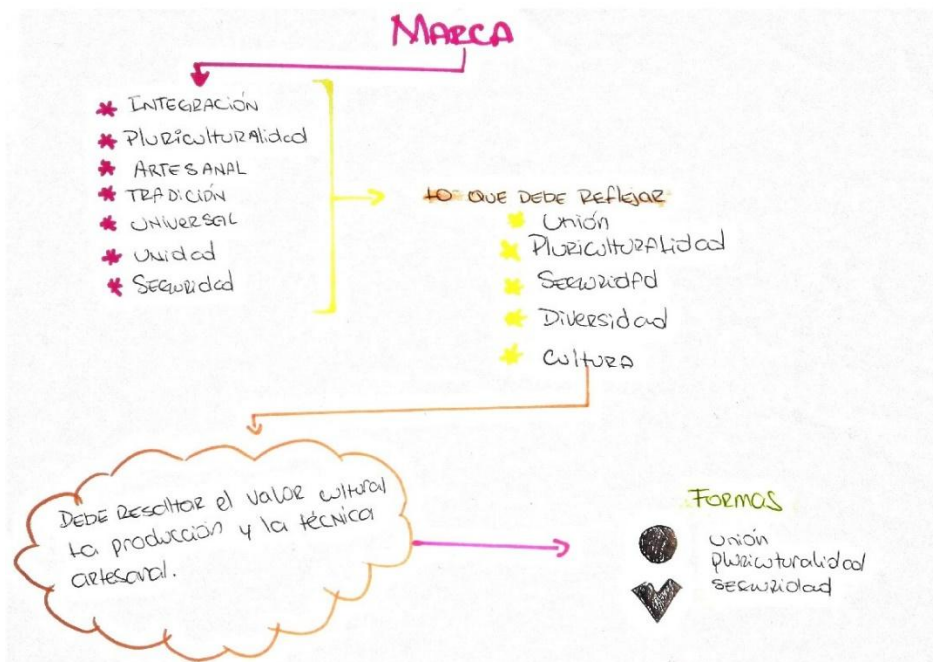 MARCA
INTEGRACIÓN
PluRicultuRAlidad
ARTESANAL
TRADICIÓN
UNIVERSAL
UNIDAD
SEGURIDAD
LO QUE DEBE REFLEJAR
UNIÓN
PLURICULTURALIDAD
SEGURIDAD
DIVERSIDAD
CULTURA
DEBE RESALTAR el VALOR cultural
LA producción y la técnica
artesanal.
FORMAS
unión
pluricuturalidad
SEGURIDAD